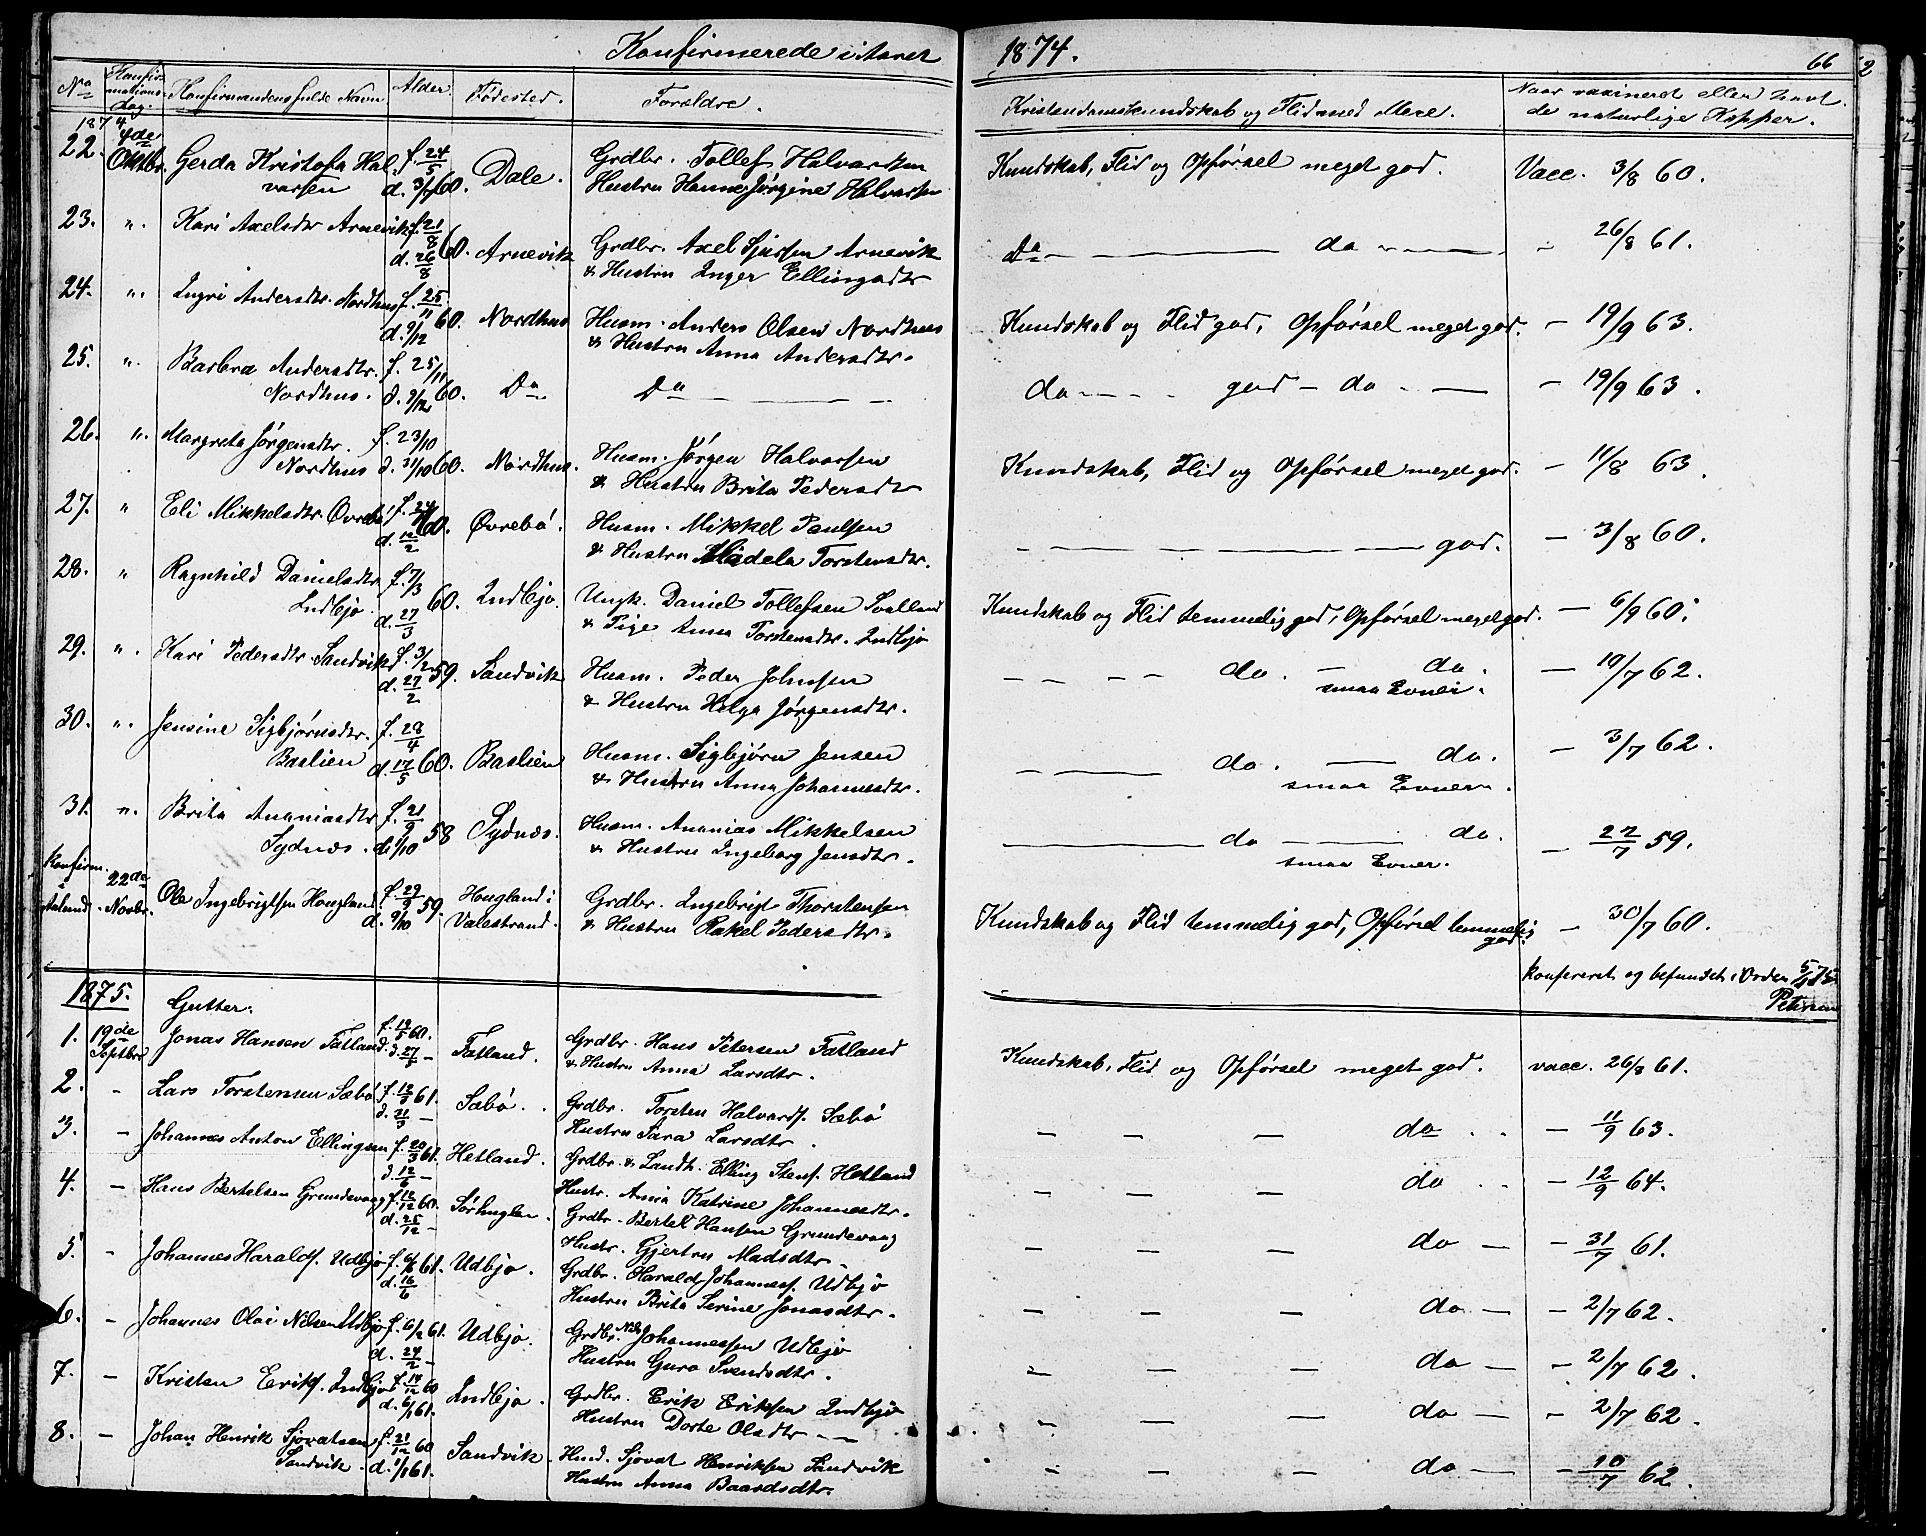 Konfirmerede i Aaret 1874. 66
No Konfirmations Dag. Konfirmandens fulde Navn Alder Fødested. Forældre. Kristendomskundskab og Flid med Mere. Naar vaxineret eller havt de naturlige Kopper.
1874
22. 4de Oktbr. Gerda Kristofa Hal- f. 24/5 Dale. Grdbr. Tollef Halvorsen Kundskab, Flid og Opførsel meget god. Vacc. 3/8 60.
vorsen d. 3/7 60. Hustru Hanne Jørgine Halvorsen
23. „. Kari Axelsdtr Arnevik f. 21/8 60. Arnevik Grdbr. Axel Sjursen Arnevik Do — do — — 26/8 61.
d. 26/8 & Hustru Inger Ellingsdtr
24. „. Ingri Andersdtr. Nordhus f. 25/11 60. Nordhus Husm. Anders Olsen Nordhus Kundskab og Flid god, Opførsel meget god. — 19/9 63.
d. 9/12 & Hustru Anna Andersdtr.
25. „. Barbra Andersdtr. f. 25/11 Do Do — — — do — — god — do — — 19/9 63.
Nordhus. d. 9/12 60.
26. „. Margreta Jørgensdtr. f. 23/10 Nordhus. Husm. Jørgen Halvorsen Kundskab, Flid og Opførsel meget god. — 11/8 63.
Nordhus d. 31/10 60. & Hustru Brita Pedersdtr
27. „ Eli Mikkelsdtr. Øvrebø f. 24/1 60. Øvrebø. Husm. Mikkel Paulsen — — — — god. — 3/8 60.
d. 12/2 & Hustru Madela Torstensdtr.
28. „ Ragnhild Danielsdtr f. 7/3 60. Indbjo. Ungk. Daniel Tollefsen Svolland Kundskab og Flid temmelig god, Opførsel meget god. — 6/9 60.
Indbjo. d. 27/3 & Pige Anna Torstensdtr. Indbjo
29. „. Kari Pedersdtr Sandvik f. 3/2 59. Sandvik Husm. Peder Johnsen — — — — do. — do. — 10/7 62.
d. 27/2 & Hustru Helga Jørgensdtr. smaa Evner.
30. „. Jensine Sigbjørnsdtr. f. 28/4 Baslien Husm. Sigbjørn Jensen — — do. — do. — 3/7 62.
Baslien d. 17/5 60. & Hustru Anna Johannesdtr. smaa Evner.
31. „. Brita Ananiasdtr f. 21/9 58 Sydnæs. Husm. Ananias Mikkelsen — do — do. — 22/7 59.
Sydnæs. d. 1/10 & Hustru Ingeborg Jensdtr. smaa Evner.
Konfirm. i Aalund. 22de Novbr. Ole Ingebrigtsen Hougland f. 29/9 59. Hougland i Grdbr. Ingebrigt Thorstensen Kundskab og Flid temmelig god, Opførsel temmelig god. — 30/7 60.
d. 9/10 Valestrand. & Hustru Rakel Pedersdtr.
konfereret og befundet i Orden 5/4 75
Petersen
1875. Gutter.
1. 19de Septbr Jonas Hansen Fatland. f. 19/5 60. Fatland. Grdbr. Hans Petersen Fatland Kundskab, Flid og Opførsel meget god. vacc. 26/8 61.
d. 27/5 — & Hustru Anna Larsdtr.
2. — Lars Torstensen Sæbø f. 13/3 61. Sæbø. Grdbr. Torsten Halvords. Sæbø — — — do — 11/9 63.
d. 31/3 — Hustru Sara Larsdtr.
3. — Johannes Anton Ellingsen f. 20/3 61. Hetland. Grdbr. & Landh. Elling Stens. Hetland — — — do — 12/9 64.
d. 12/5 — Hustr. Anna Katrine Johannesdtr.
4. — Hans Bertelsen Grundevaag f. 12/12 60. Sørhuglen. Grdbr. Bertel Hansen Grundevaag — — — do — — 31/7 61.
d. 25/12 — Hustr. Gjertru Madsdtr.
5. — Johannes Haralds. Udbjo f. 6/6 61. Udbjo. Grdbr. Harald Johanness. Udbjo — — — do — — 2/7 62.
d. 16/6 Hustru Brita Serine Jonasdtr.
6. — Johannes Olai Nilsen Udbjo f. 6/2 61. Udbjo. Grdbr. Nils Johannessen Udbjo — — — do — — 2/7 62.
d. 24/2 — Hustru Guro Svendsdtr.
7. — Kristen Eriks. Indbjo f. 19/12 60 Indbjo. Grdbr. Erik Eriksen Indbjo — — — do — — 2/7 62.
d. 6/1 61. Hustru Dorte Olsdtr
8. — Johan Henrik Sjovatsen f. 21/12 60 Sandvik. Husm. Sjovat Henriksen Sandvik — — — do — — 10/7 62.
Sandvik. d. 1/1 61. Hustru Anna Baardsdtr.